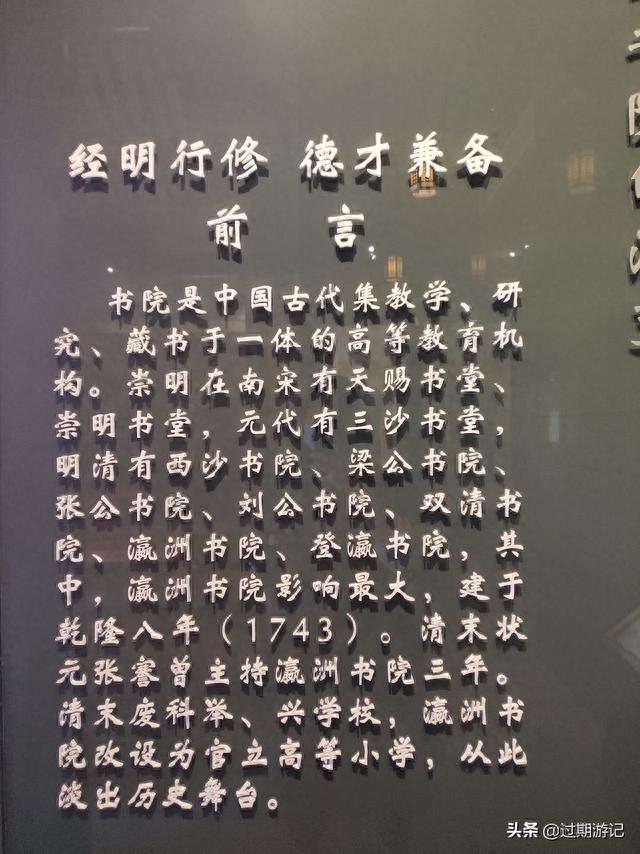 经明行修 德才兼备
前 言
书院是中国古代集教学、研
究、藏书于一体的高等教育机
构。崇明在南宋有天赐书堂、
崇明书堂，元代有三沙书堂，
明清有西沙书院、梁公书院、
张公书院、刘公书院、双清书
院、瀛洲书院、登瀛书院，其
中，瀛洲书院影响最大，建于
乾隆八年（1743）。清末状
元张謇曾主持瀛洲书院三年。
清末废科举、兴学校，瀛洲书
院改设为官立高等小学，从此
淡出历史舞台。
头条 @过期游记